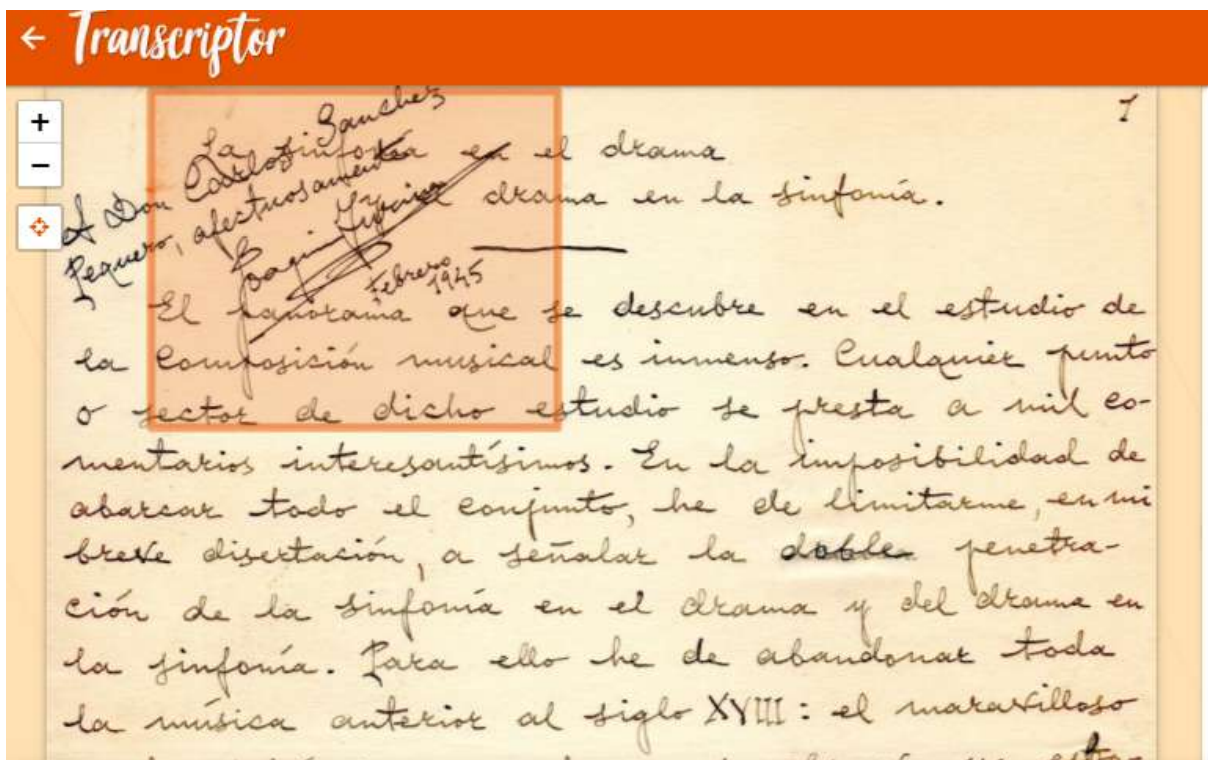 ← Transcriptor
+
−
1
La sinfonía en el drama
y el drama en la sinfonía.
A Don Carlos Sanchez
Pequero, afectuosamente
Joaquin Turina
Febrero
1945
El panorama que se descubre en el estudio de
la composición musical es inmenso. Cualquier punto
o sector de dicho estudio se presta a mil co-
mentarios interesantísimos. En la imposibilidad de
abarcar todo el conjunto, he de limitarme, en mi
breve disertación, a señalar la doble penetra-
ción de la sinfonía en el drama y del drama en
la sinfonía. Para ello he de abandonar toda
la música anterior al siglo XVIII: el maravilloso